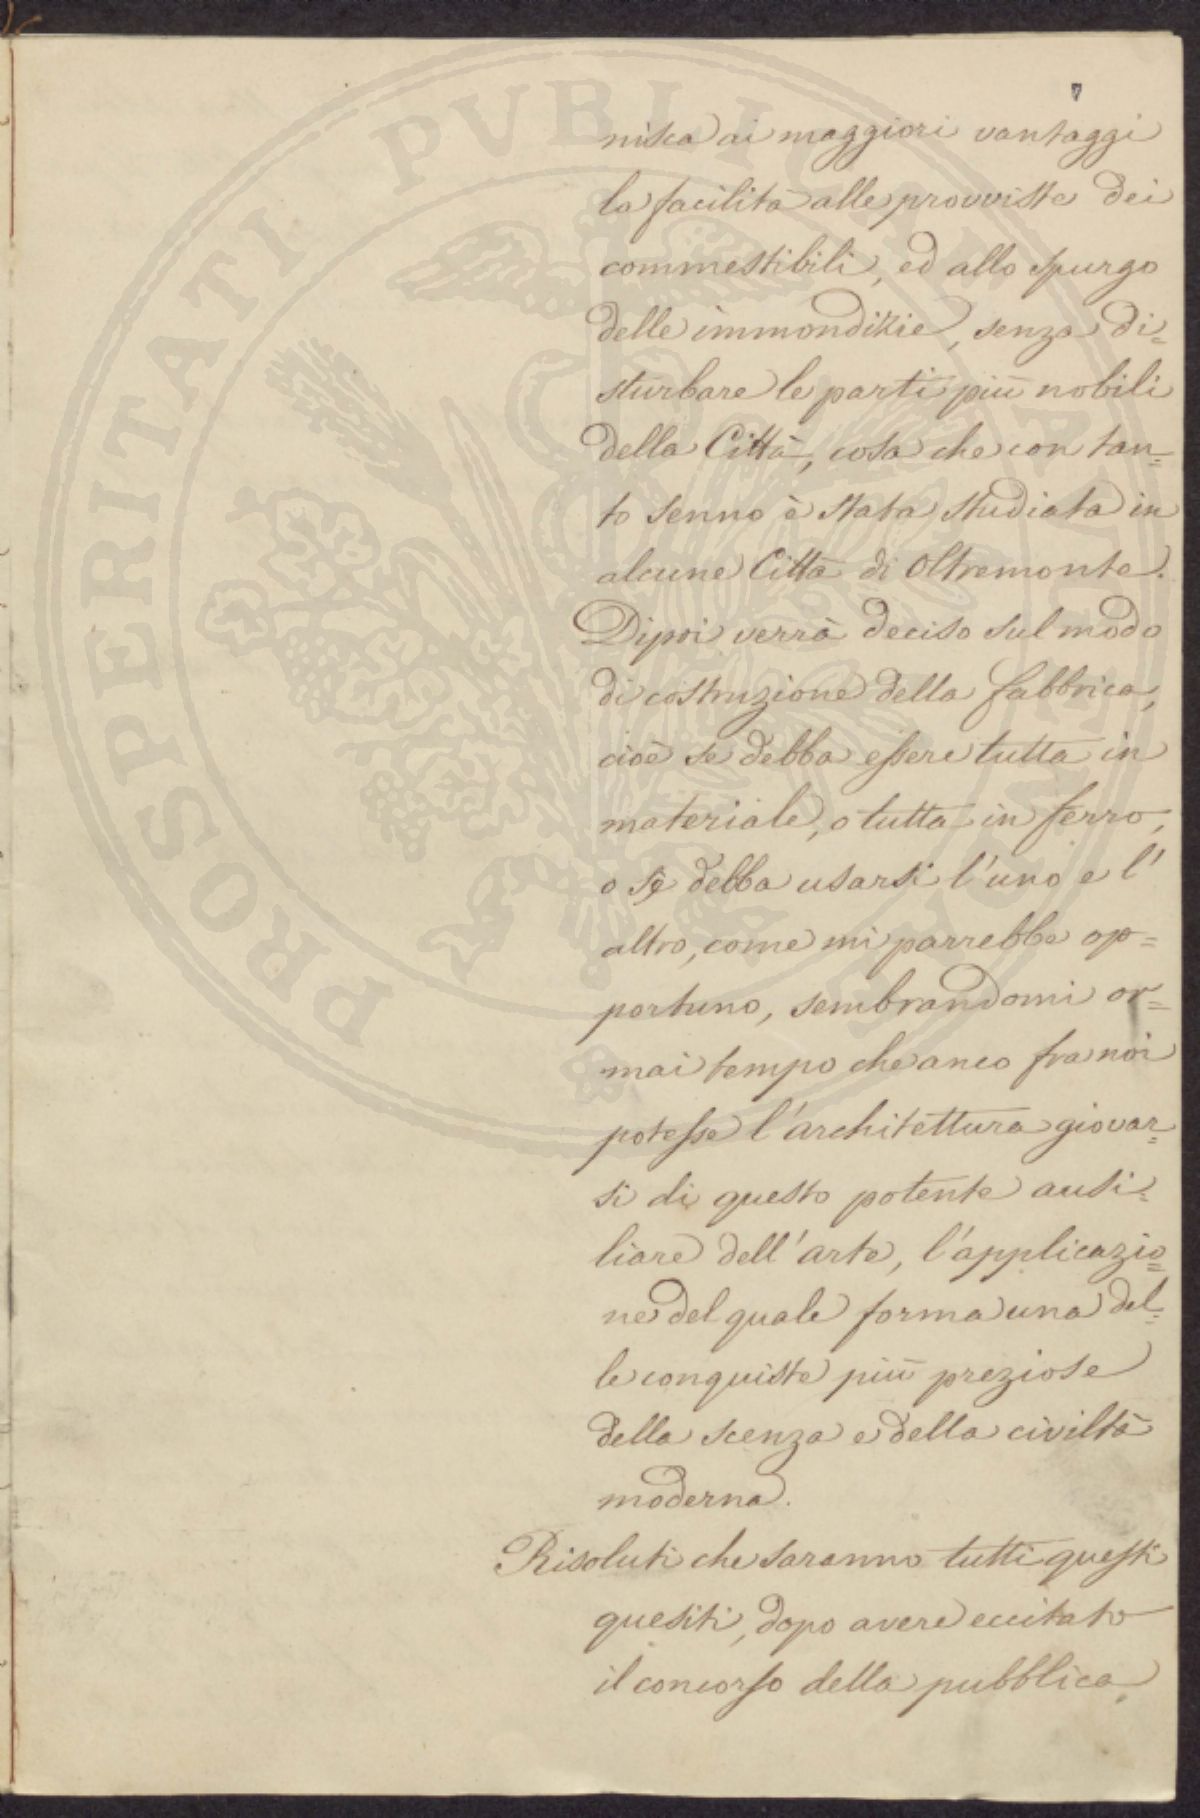 7
nisca ai maggiori vantaggi
la facilità alle provviste dei
commestibili, ed allo spurgo
delle immondizie, senza di=
sturbare le parti più nobili
della Città, cosa che con tan=
to senno è stata studiata in
alcune Città di Oltremonte.
Dipoi verrà deciso sul modo
di costruzione della fabbrica,
cioè se debba essere tutta in
materiale, o tutta in ferro,
o se debba usarsi l'uno e l'
altro, come mi parrebbe op=
portuno, sembrandomi or=
mai tempo che anco fra noi
potesse l'architettura giovar=
si di questo potente ausi=
liare dell'arte, l'applicazio=
ne del quale forma una del=
le conquiste più preziose
della scenza e della civiltà
moderna.
Risoluti che saranno tutti questi
quesiti, dopo avere eccitato
il concorso della pubblica
PROSPERITATI PVBLICAE